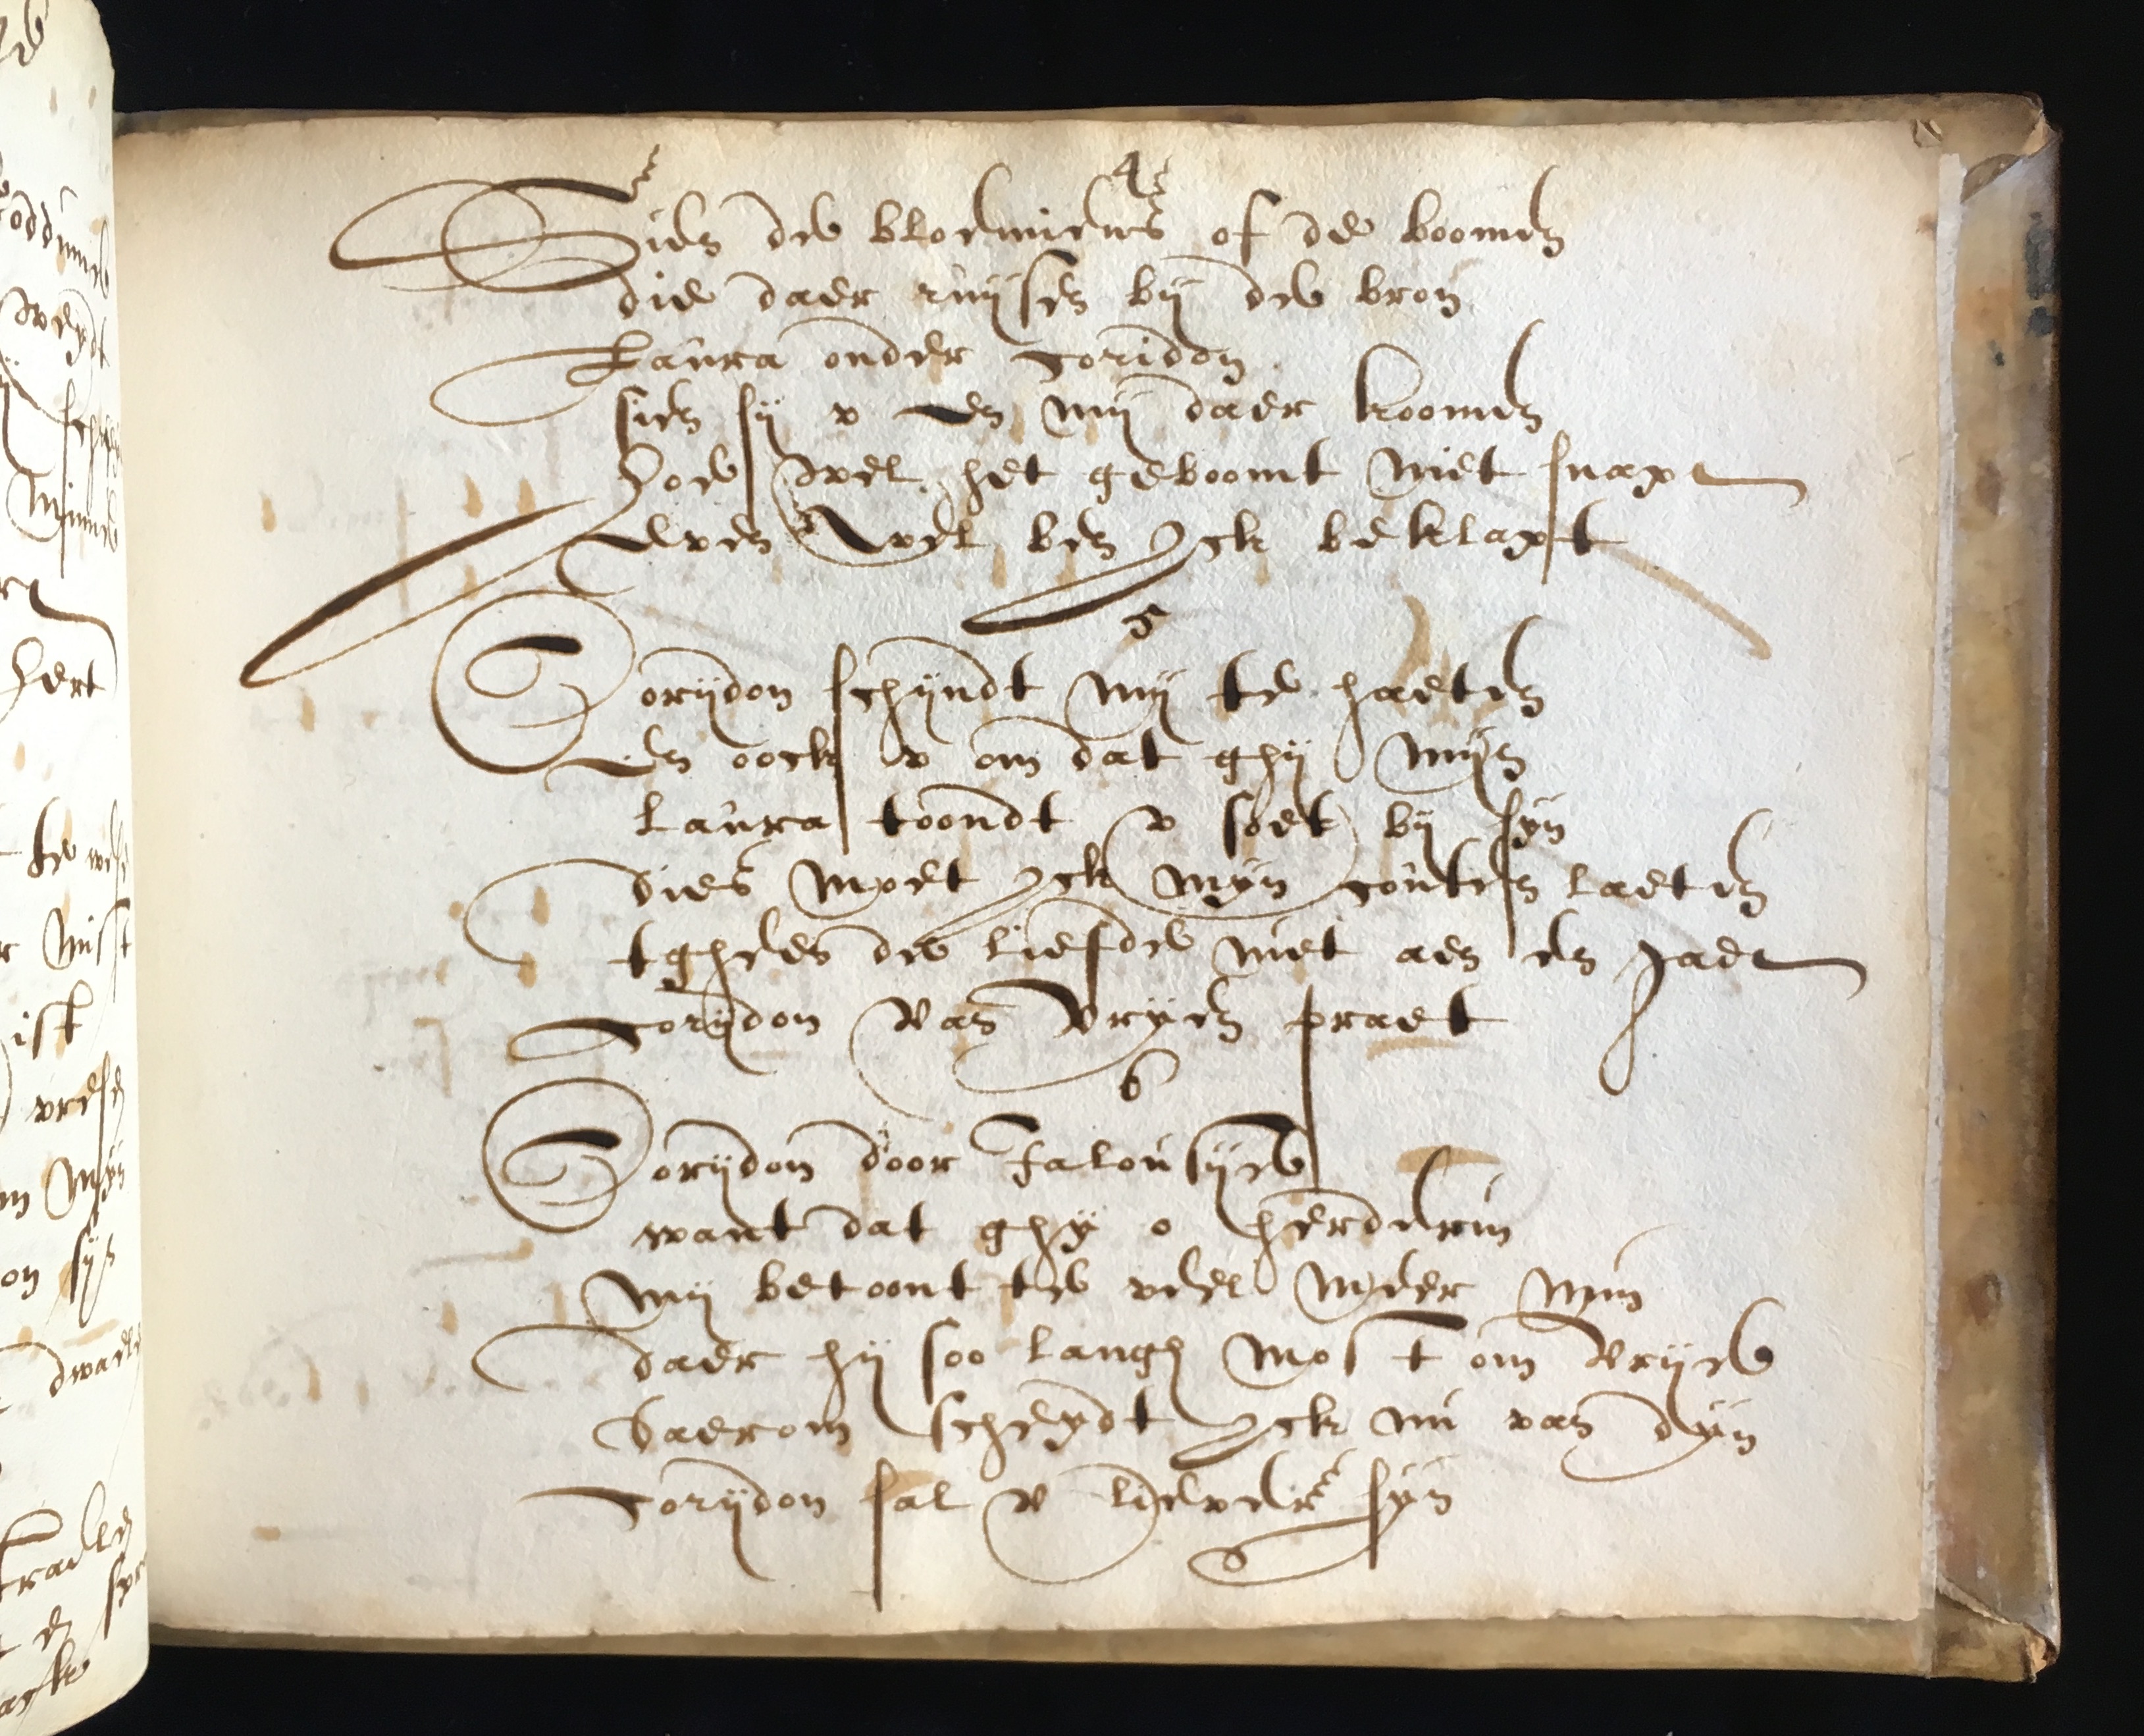 4
Sien de bloemiens of de boomen
die daer ruijsen bij de bron
Laura onder coridon
sien sij v en mij daer koomen
hoe wel het geboomt niet snapt
euen wel ben yck beklapt
5
Corijdon schijndt mij te haeten
en oock v om dat ghij mijn
laura toondt v soet bij sijn
dies moet yck mijn couten laeten
tgheen de liefde niet aen en gaet
Corijdon van vrijen praet
6
Corijdon door Jalousije
want dat ghy o herderin
mij betoont te veel meer min
daer hij soo langh most om vrije
daerom scheydt yck nu van dyn
Corijdon sal v liever sijn